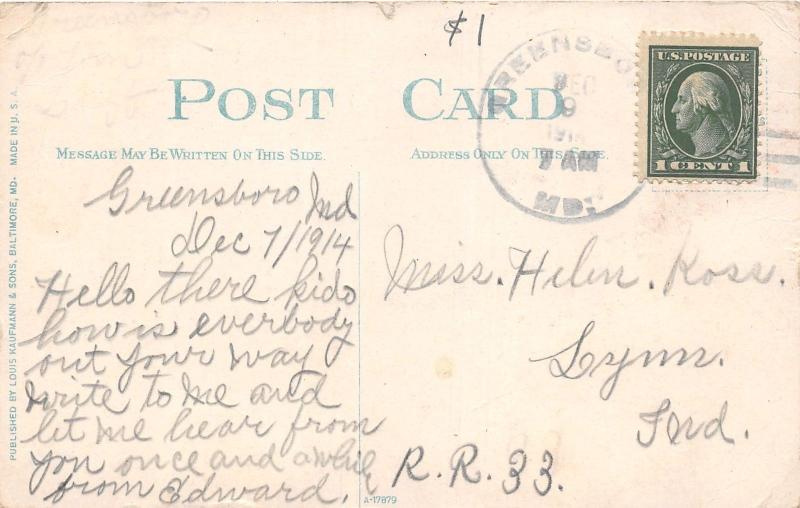 $1
POST CARD
MESSAGE MAY BE WRITTEN ON THIS SIDE.
ADDRESS ONLY ON THIS SIDE.
GREENSBO
DEC
9
7 AM
MD.
U.S. POSTAGE
1 CENT 1
Greensboro Md
Dec 7/1914
Hello there kido
how is everbody
out your way
write to me and
let me hear from
you once and awhile
from Edward.
Miss. Helen. Ross.
Lynn.
Ind.
R.R. 33.
A-17879
PUBLISHED BY LOUIS KAUFMANN & SONS, BALTIMORE, MD. MADE IN U.S.A.